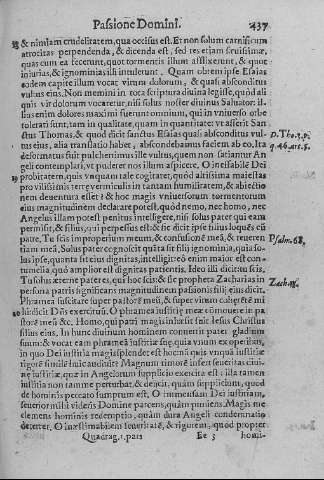 Passione Domini. 437
& nimiam crudelitatem, qua occisus est. Et non solum carnificum
atrocitas perpendenda, & dicenda est, sed res etiam
quas cum ea fecerunt, quot tormentis illum afflixerunt, & quot
iniurias, & ignominias illi intulerunt. Quam ob rem ipse Esaias
eodem capite illum vocat virum dolorum, & quasi absconditus
vultus eius, Non memini in tota scriptura divina legisse, quod ali
quis vir dolorum vocaretur, nisi solus noster divinus Salvator: il-
lius enim dolores maximi fuerunt omnium, qui in universo orbe
tolerati sunt, tam in qualitate, quam in quantitate: ut asserit San
ctus Thomas, & quod dicit sanctus Esaias quasi absconditus vul-
tus eius, alia translatio habet, abscondebamus faciem ab eo, Ita
deformatus fuit pulcherrimus ille vultus, quem non satiantur An
geli contemplari, ut puderet nos illum aspicere. O ineffabilē Dei
probitatem, quis unquam tale cogitaret, quod altissima maiestas
pro vilissimis terrę vermiculis in tantam humilitatem, & abiectio
nem deventura esset? & hoc magis universorum tormentorum
eius magnitudinem declarare potest, quod nemo, nec homo, nec
Angelus illam potest penitus intelligere, nisi solus pater qui eam
permisit, & filius, qui perpessus est, & sic dicit ipse filius loquēs cū
patre, Tu scis improperium meum, & confusionē meā, & reveren
tiam meā, Solus pater cognoscit quāta sit filij ignominia, quia so-
lus ipse, quanta sit eius dignitas, intelligit: eò enim maior est con-
tumelia, quò amplior est dignitas patientis. Ideo illi dicit: tu scis,
Tu solus æterne pater es, qui hoc scis: & sic propheta Zacharias in
persona patris significans magnitudinem passionis filij eius dicit.
Phramea suscitare super pastorē meū, & super virum cohęrētē mi
hi dicit Dñs exercituū. O phramea iustitiæ meæ commovere in pa
storē meū &c. Homo, qui patri magis inhæsit fuit Iesus Christus
filius eius, In hunc divinum hominem convertit pater gladium
suum: & vocat eam phrameā iustitiæ suę, quia unum ex operibus,
in quo Dei iustitia magis splendet est
rigorē similē huic
nę iustitiæ, quæ in Angelorum supplicio exercita est: illa tamen
iustitia non tamen perturbat, & deicit, quàm supplicium, quod
de hominis peccato sumptum est, O immensam Dei iustitiam,
severior mihi videris Domine parcens, quàm puniens. Magis me
clemens hominis redemptio, quàm dura Angeli condemnatio
deterret, O inæstimabilem severitatē, & rigorem, quòd propter
Quadrag. 1. pars Ee 3 homi-
D. Tho. 3. p.
q. 46. ar. 6.
Psalm. 68.
Zach. 13.